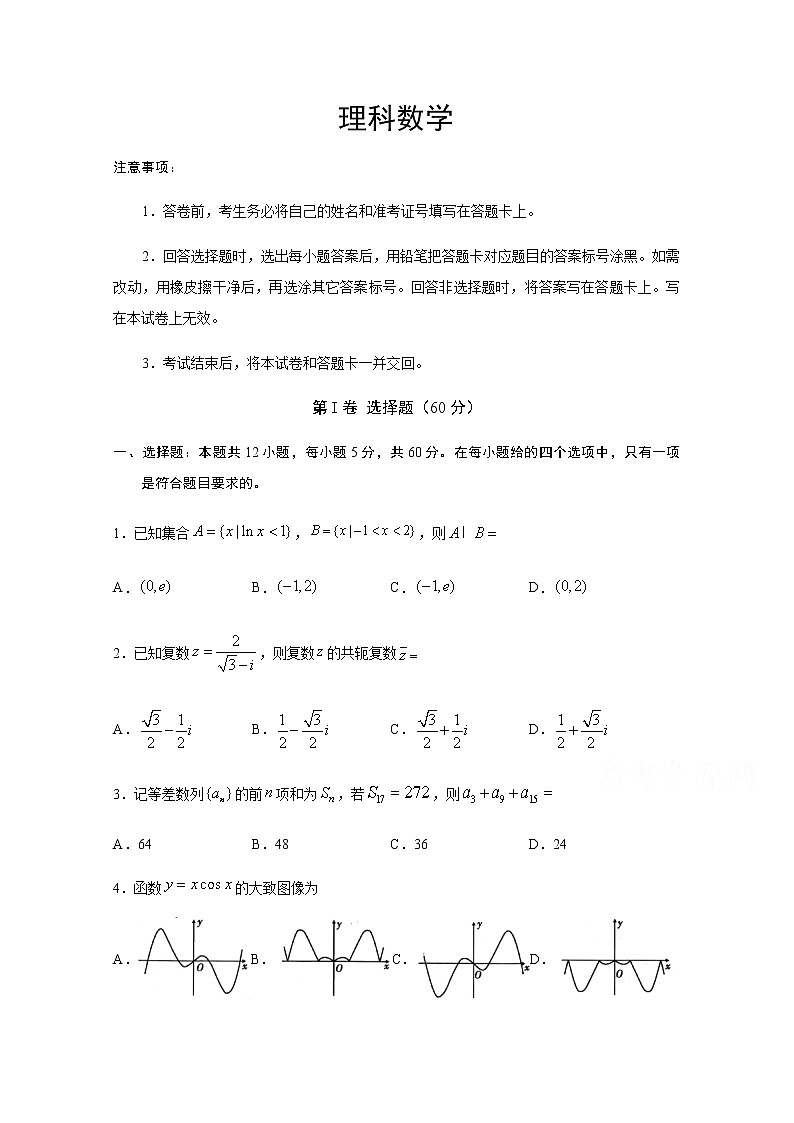 理科数学
注意事项：
1．答卷前，考生务必将自己的姓名和准考证号填写在答题卡上。
2．回答选择题时，选出每小题答案后，用铅笔把答题卡对应题目的答案标号涂黑。如需
改动，用橡皮擦干净后，再选涂其它答案标号。回答非选择题时，将答案写在答题卡上。写
在本试卷上无效。
3．考试结束后，将本试卷和答题卡一并交回。
第 I 卷 选择题（60 分）
一、选择题：本题共 12 小题，每小题 5 分，共 60 分。在每小题给的四个选项中，只有一项
是符合题目要求的。
1．已知集合 A = {x | ln x < 1}，B = {x | −1 < x < 2}，则 A | B =
A．(0, e) B．(−1, 2) C．(−1, e) D．(0, 2)
2．已知复数 z = 2/(√3 − i)，则复数 z 的共轭复数 z̄ =
A．√3/2 − 1/2 i B．1/2 − √3/2 i C．√3/2 + 1/2 i D．1/2 + √3/2 i
3．记等差数列 {aₙ} 的前 n 项和为 Sₙ，若 S₁₇ = 272，则 a₃ + a₉ + a₁₅ =
A．64 B．48 C．36 D．24
4．函数 y = x cos x 的大致图像为
A． y O x B． y O x C． y O x D． y O x